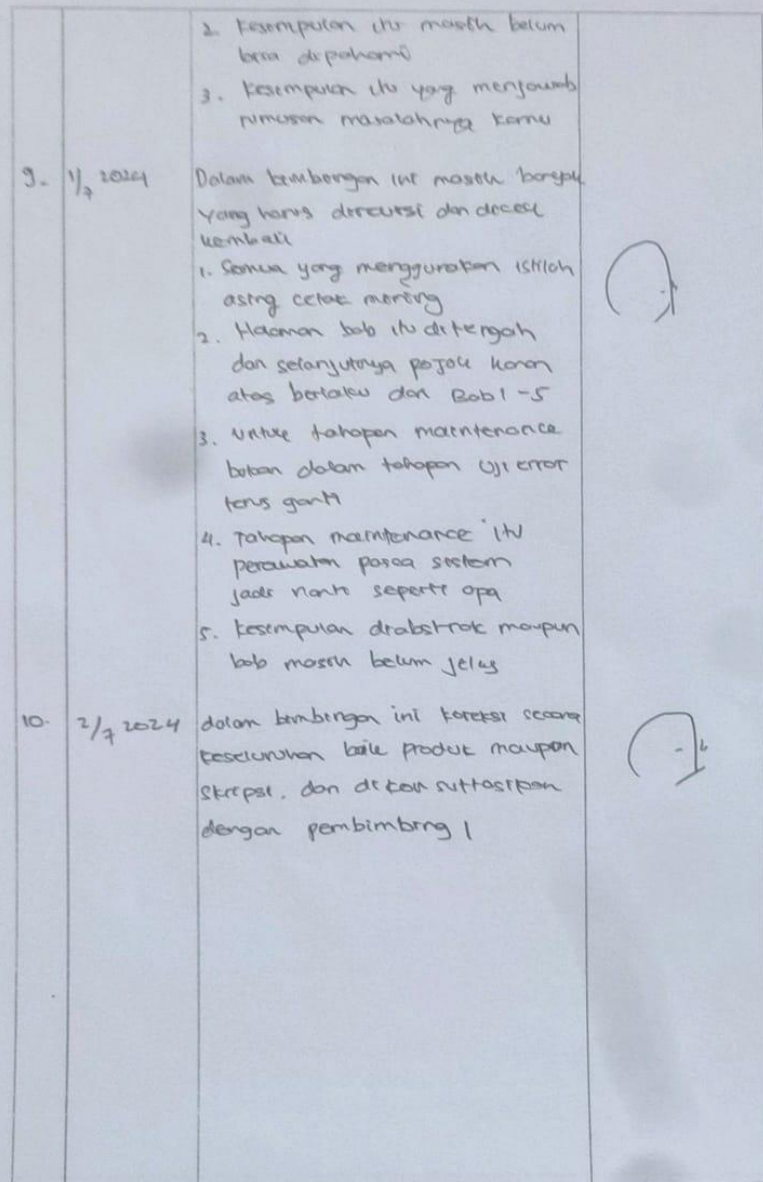 2. Kesimpulan itu masih belum
bisa dipahami
3. Kesimpulan itu yang menjawab
rumusan masalahnya kamu
9. 1/7 2024 Dalam bimbingan ini masih banyak
yang harus direvisi dan dicek
kembali
1. Semua yang menggunakan istilah
asing cetak miring
2. Halaman bab itu ditengah
dan selanjutnya pojok kanan
atas berlaku dari Bab 1-5
3. untuk tahapan maintenance
bukan dalam tahapan uji error
terus ganti
4. Tahapan maintenance itu
perawatan pasca sistem
jadi nanti seperti apa
5. Kesimpulan diabstrak maupun
bab masih belum jelas
10. 2/7 2024 dalam bimbingan ini koreksi secara
keseluruhan baik produk maupun
skripsi. dan di
dengan pembimbing 1